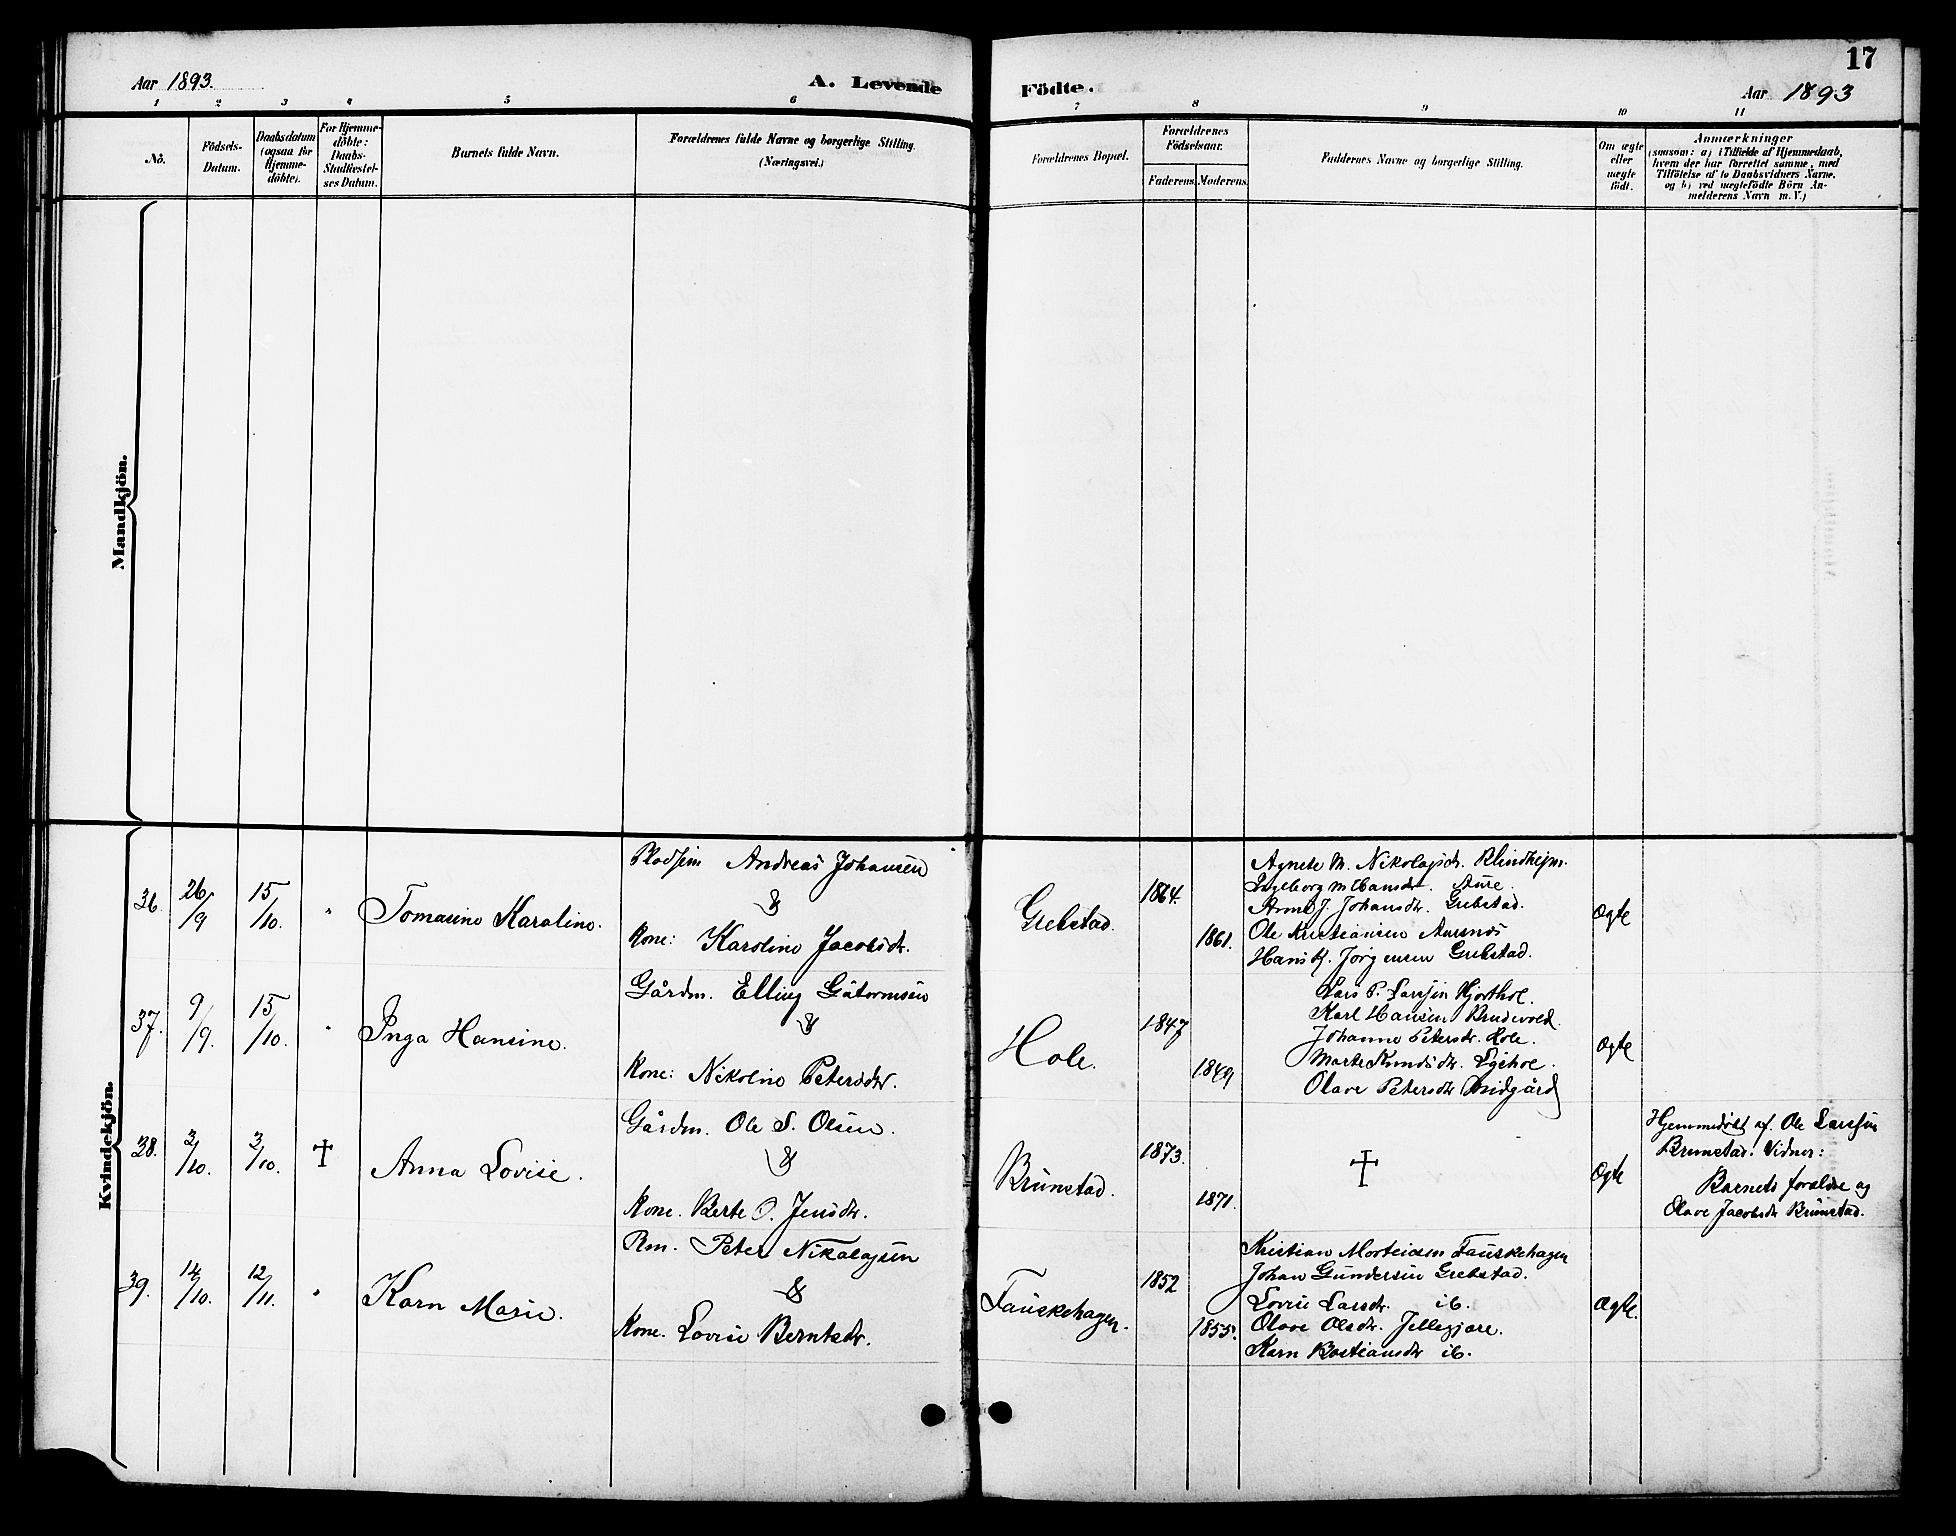 Aar 1893.
A. Levende
Födte.
Aar 1893
17
1 2 3 4 5 6 7 8 9 10 11
No.
Födsels-
Datum.
Daabsdatum
(ogsaa for
Hjemme-
döbte).
For Hjemme-
döbte:
Daabs-
Stadfæstel-
ses Datum.
Barnets fulde Navn.
Forældrenes fulde Navne og borgerlige Stilling.
(Næringsvei.)
Forældrenes Bopæl.
Forældrenes
Födselsaar.
Faderens.
Moderens.
Faddernes Navne og borgerlige Stilling.
Om ægte
eller
uægte
födt.
Anmærkninger
(saasom: a) i Tilfælde af Hjemmedaab,
hvem der har forrettet samme, med
Tilföielse af to Daabsvidners Navne,
og b) ved uægtefödte Börn An-
melderens Navn m. V.)
Mandkjön.
Kvindekjön.
36. 26/9 15/10. " Tomasine Karoline.
Pladsm Andreas Johansen
&
Kone: Karoline Jacobsdr.
Grebstad.
1864.
1861.
Agnete M. Nikolaisdr. Klindheim.
Ingeborg M Hansdr. Aure.
Anne J. Johansdr. Grebstad.
Ole Kristiansen Aursnes
Hans K. Jörgensen Grebstad.
Ægte
37. 9/9. 15/10. " Inga Hansine.
Gårdm. Elling Guttormsen
&
Kone: Nikoline Petersdr.
Hole.
1847
1849
Lars P. Larssen Hjorthol.
Karl Hansen Brudevold.
Johanne Petersdr. Hole.
Marte Knudsdr. Ligehoe.
Olave Petersdr Midgård
Ægte
38. 3/10. 3/10. † Anna Lovise.
Gårdm. Ole S. Olsen.
&
Kone. Berte O. Jensdr.
Brunstad.
1873.
1871.
†
Ægte
Hjemmedöbt af. Ole Larssen
Brunstad. Vidner:
Barnets forældre og
Olave Jacobsdr Brunstad.
39. 14/10. 12/11. " Karn Marie.
Rm. Peter Nikolaisen
&
Kone. Lovise Berntsdr.
Fauskehagen.
1852
1855.
Kristian Mortensen Fauskehagen
Johan Gundersen Grebstad.
Lovise Larsdr. ib.
Olave Olsdr. Jellegjære.
Karn Bastiansdr ib.
Ægte.